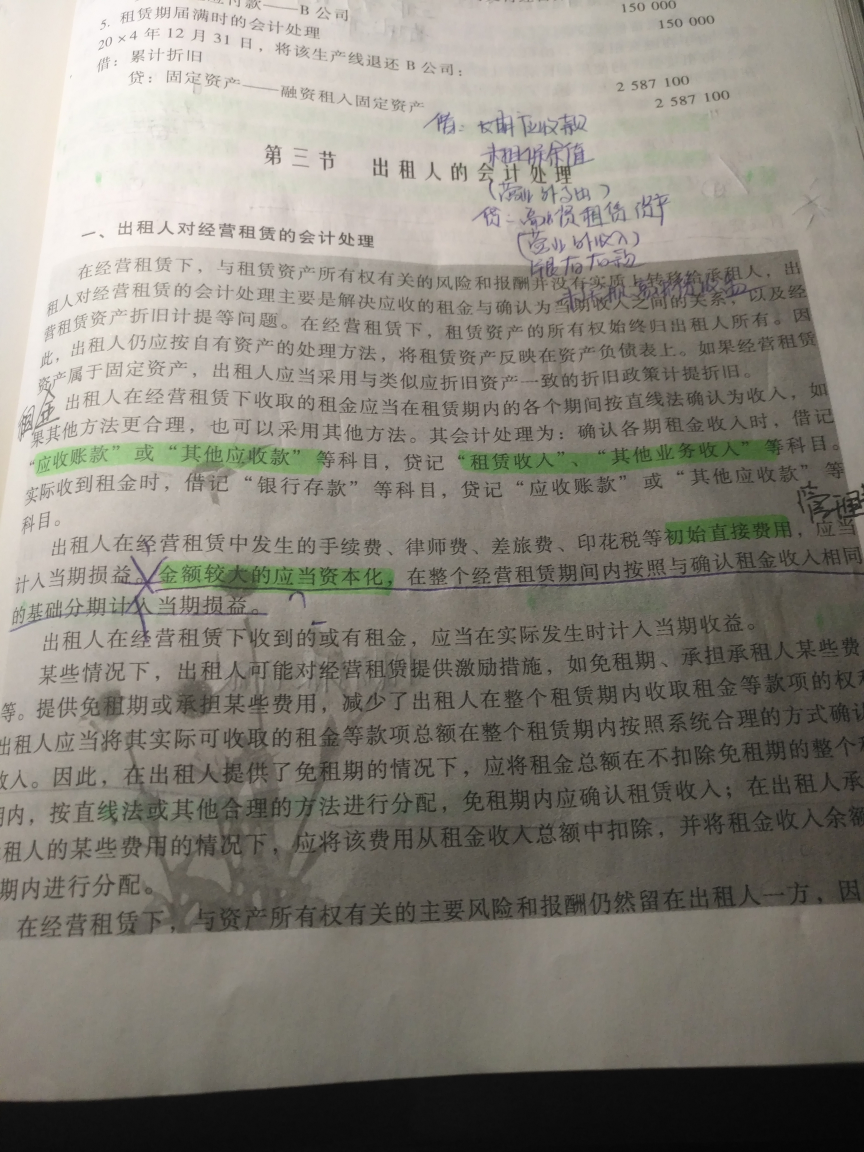 应付款——B公司
150 000
150 000
5. 租赁期届满时的会计处理
20×4年12月31日，将该生产线退还B公司：
借：累计折旧
2 587 100
贷：固定资产——融资租入固定资产
2 587 100
借：长期应收款
未担保余值
第三节 出租人的会计处理
（营业外支出）
贷：融资租赁资产
（营业外收入）
银行存款
一、出租人对经营租赁的会计处理
在经营租赁下，与租赁资产所有权有关的风险和报酬并没有实质上转移给承租人，出
租人对经营租赁的会计处理主要是解决应收的租金与确认为当期收入之间的关系，以及经
营租赁资产折旧计提等问题。在经营租赁下，租赁资产的所有权始终归出租人所有。因
此，出租人仍应按自有资产的处理方法，将租赁资产反映在资产负债表上。如果经营租赁
资产属于固定资产，出租人应当采用与类似应折旧资产一致的折旧政策计提折旧。
租金
出租人在经营租赁下收取的租金应当在租赁期内的各个期间按直线法确认为收入，如
果其他方法更合理，也可以采用其他方法。其会计处理为：确认各期租金收入时，借记
“应收账款”或“其他应收款”等科目，贷记“租赁收入”、“其他业务收入”等科目。
实际收到租金时，借记“银行存款”等科目，贷记“应收账款”或“其他应收款”等
科目。
管理
出租人在经营租赁中发生的手续费、律师费、差旅费、印花税等初始直接费用，应当
计入当期损益。金额较大的应当资本化，在整个经营租赁期间内按照与确认租金收入相同
的基础分期计入当期损益。
出租人在经营租赁下收到的或有租金，应当在实际发生时计入当期收益。
某些情况下，出租人可能对经营租赁提供激励措施，如免租期、承担承租人某些费
等。提供免租期或承担某些费用，减少了出租人在整个租赁期内收取租金等款项的权
出租人应当将其实际可收取的租金等款项总额在整个租赁期内按照系统合理的方式确
收入。因此，在出租人提供了免租期的情况下，应将租金总额在不扣除免租期的整个
期内，按直线法或其他合理的方法进行分配，免租期内应确认租赁收入；在出租人承
租人的某些费用的情况下，应将该费用从租金收入总额中扣除，并将租金收入余额
期内进行分配。
在经营租赁下，与资产所有权有关的主要风险和报酬仍然留在出租人一方，因